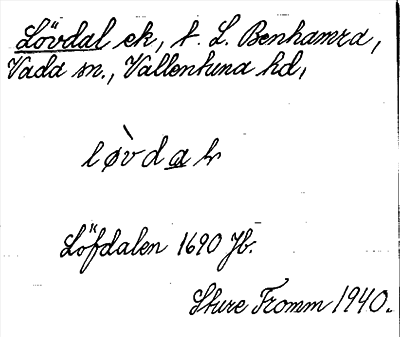 Lövdal ek, t. L. Benhamra,
Vada sn., Vallentuna hd,
lø̀vdaḷ
Löfdalen 1690 Jb.
Sture Fromm 1940.